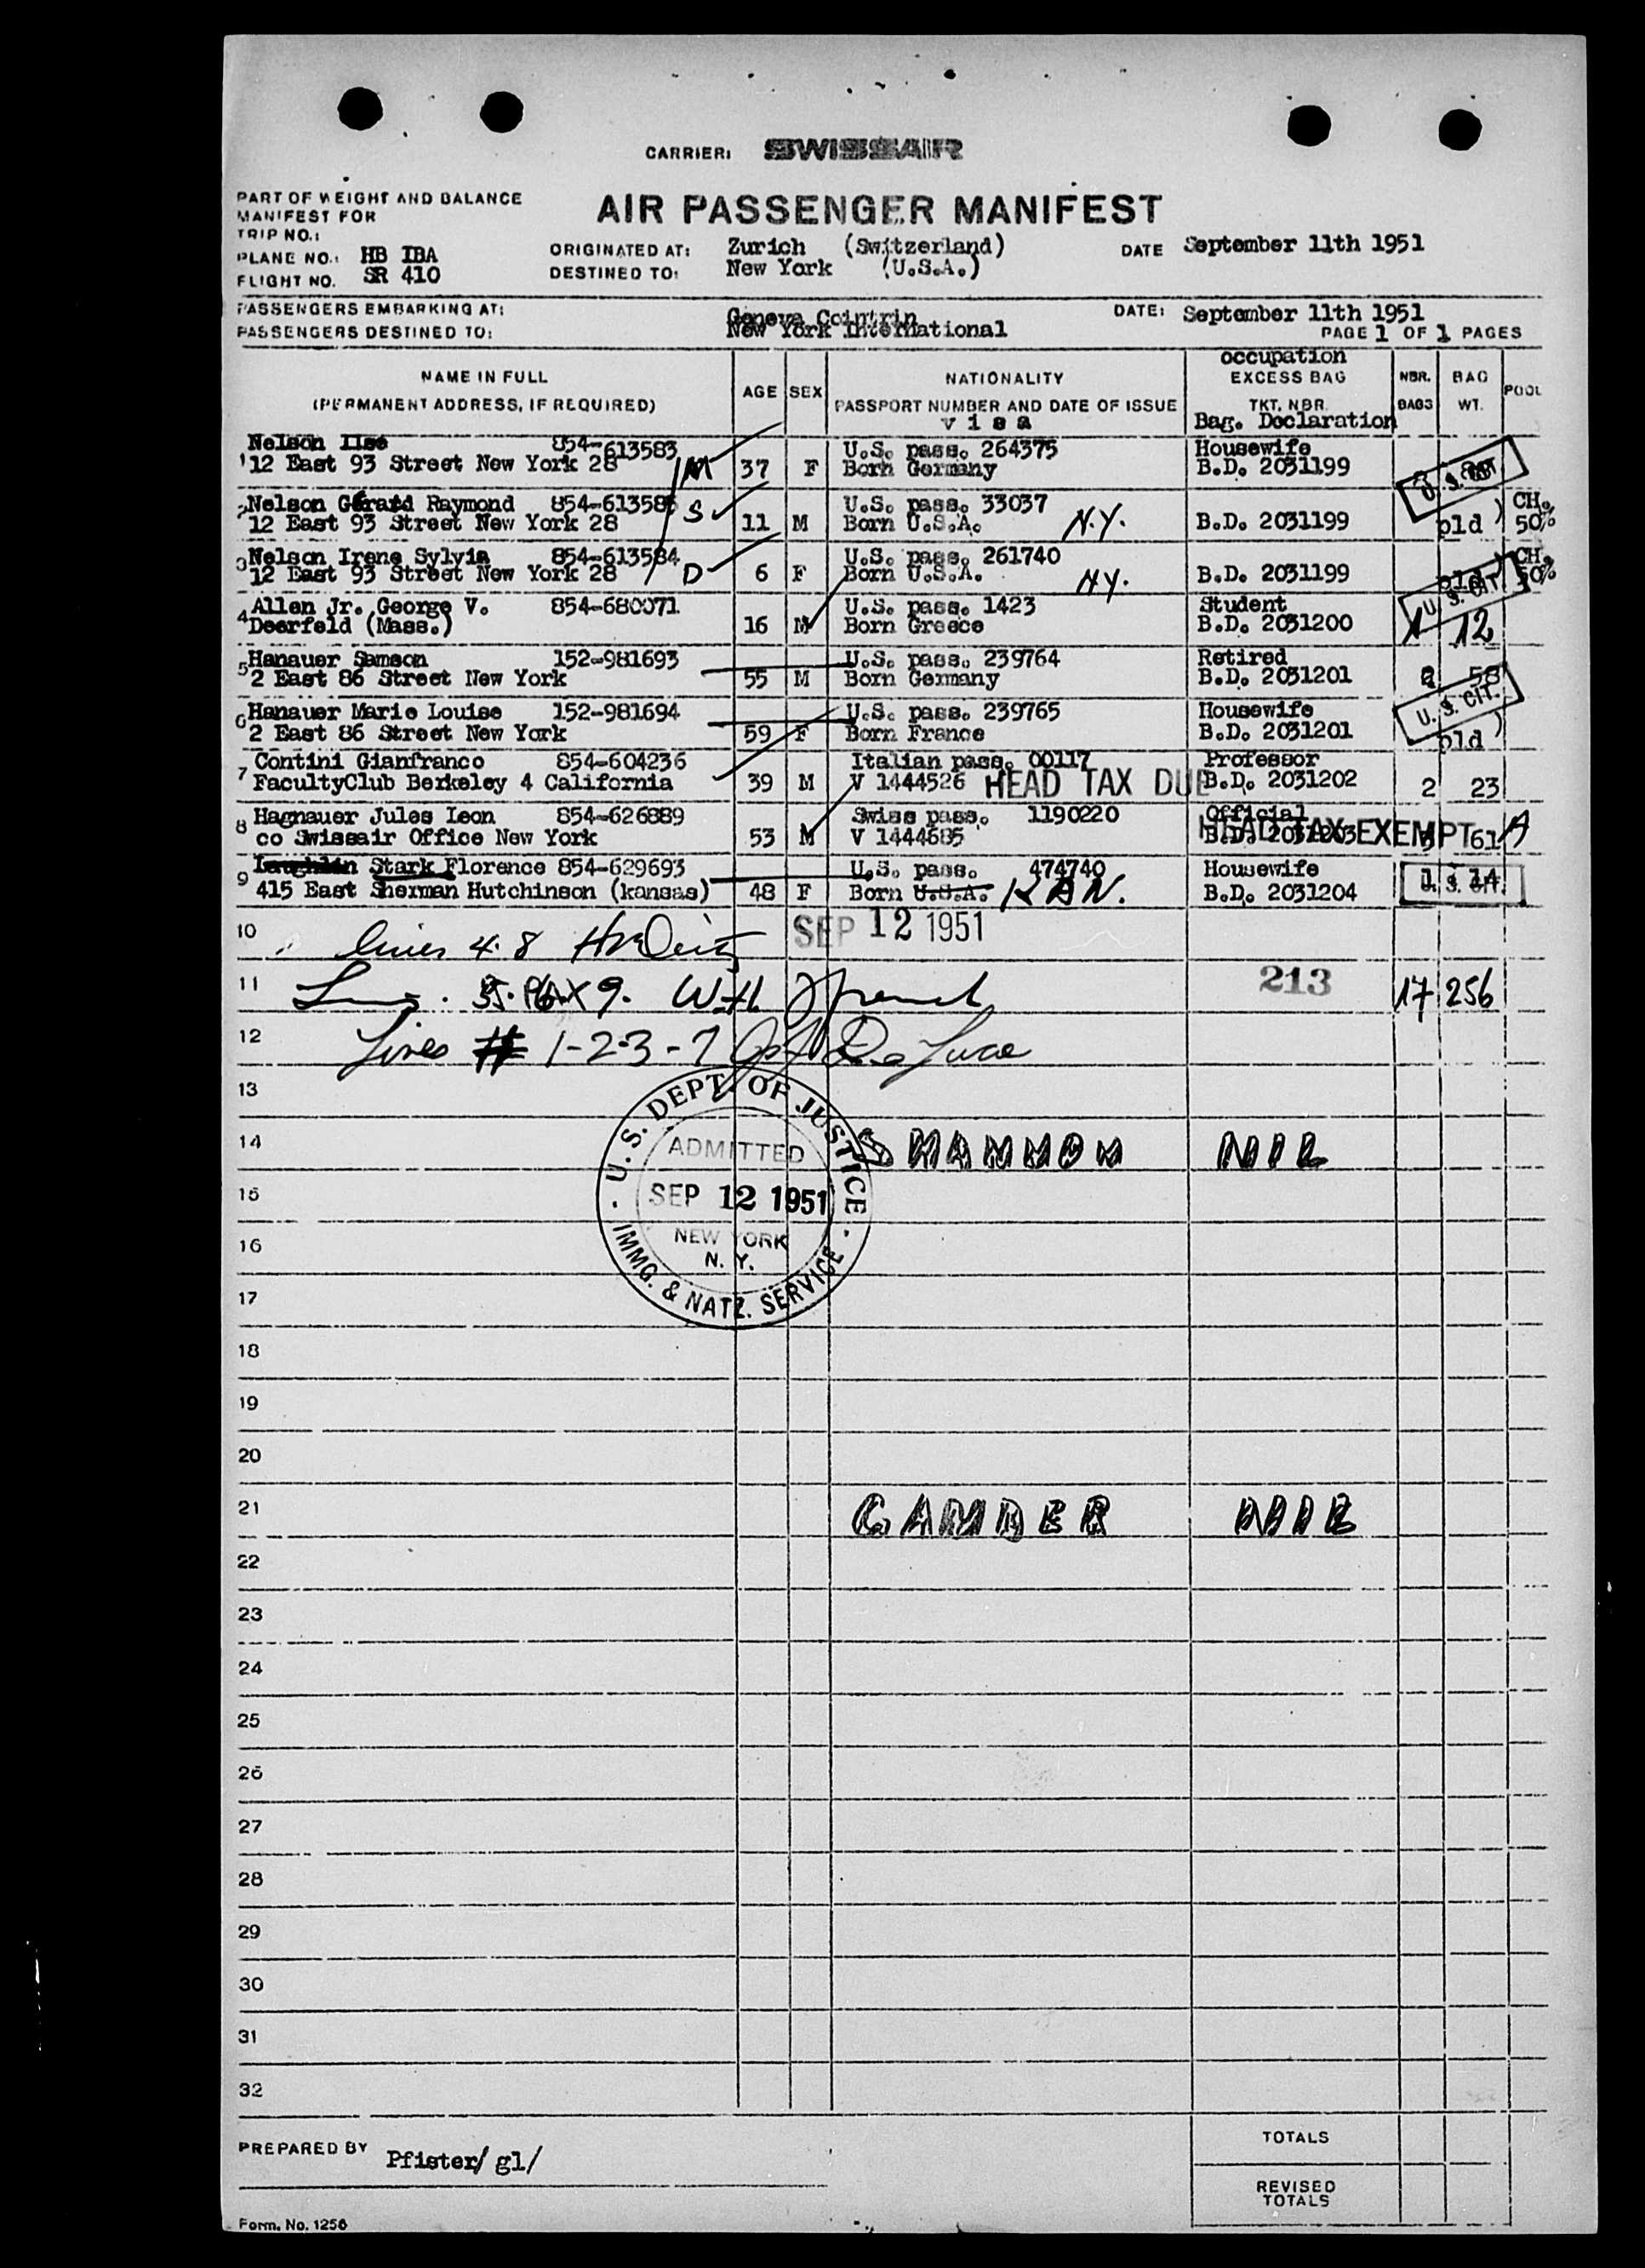 CARRIER: SWISSAIR
PART OF WEIGHT AND BALANCE
MANIFEST FOR
TRIP NO.:
AIR PASSENGER MANIFEST
PLANE NO.: HB IBA
FLIGHT NO. SR 410
ORIGINATED AT: Zurich (Switzerland)
DESTINED TO: New York (U.S.A.)
DATE September 11th 1951
PASSENGERS EMBARKING AT: Geneva Cointrin
DATE: September 11th 1951
PASSENGERS DESTINED TO: New York International
PAGE 1 OF 1 PAGES
NAME IN FULL
(PERMANENT ADDRESS, IF REQUIRED)
AGE SEX
NATIONALITY
PASSPORT NUMBER AND DATE OF ISSUE
visa
occupation
EXCESS BAG
TKT. NBR.
Bag. Declaration
NBR. BAGS
BAG WT.
POOL
1 Nelson Ilse 854-613583 U.S. pass. 264375 Housewife
12 East 93 Street New York 28 M 37 F Born Germany B.D. 2031199
2 Nelson Gerard Raymond 854-613585 U.S. pass. 33037 CH.
12 East 93 Street New York 28 S 11 M Born U.S.A. N.Y. B.D. 2031199 pld ) 50%
3 Nelson Irene Sylvia 854-613584 U.S. pass. 261740 CH.
12 East 93 Street New York 28 D 6 F Born U.S.A. N.Y. B.D. 2031199 pld 50%
U.S. CIT
4 Allen Jr. George V. 854-680071 U.S. pass. 1423 Student
Deerfeld (Mass.) 16 M Born Greece B.D. 2031200 1 12
5 Hanauer Samson 152-981693 U.S. pass. 239764 Retired
2 East 86 Street New York 55 M Born Germany B.D. 2031201 2 58
U.S. CIT.
6 Hanauer Marie Louise 152-981694 U.S. pass. 239765 Housewife
2 East 86 Street New York 59 F Born France B.D. 2031201 pld )
7 Contini Gianfranco 854-604236 Italian pass. 00117 Professor
FacultyClub Berkeley 4 California 39 M V 1444526 HEAD TAX DUE B.D. 2031202 2 23
8 Hagnauer Jules Leon 854-626889 Swiss pass. 1190220 Official
co Swissair Office New York 53 M V 1444685 B.D. 2031203 HEAD TAX EXEMPT 61 A
9 Laughlin Stark Florence 854-629693 U.S. pass. 474740 Housewife
415 East Sherman Hutchinson (kansas) 48 F Born U.S.A. KAN. B.D. 2031204 1 14
U.S. CIT.
10 lines 4. 8 SEP 12 1951
11 213 17 256
12 Lines # 1-2-3-7 De Luca
13
14 SHANNON NIL
15
16
17
U.S. DEPT. OF JUSTICE
ADMITTED
SEP 12 1951
NEW YORK
N. Y.
IMMG. & NATZ. SERVICE
18
19
20
21 GANDER NIL
22
23
24
25
26
27
28
29
30
31
32
PREPARED BY Pfister/ gl/
TOTALS
REVISED
TOTALS
Form. No. 1256